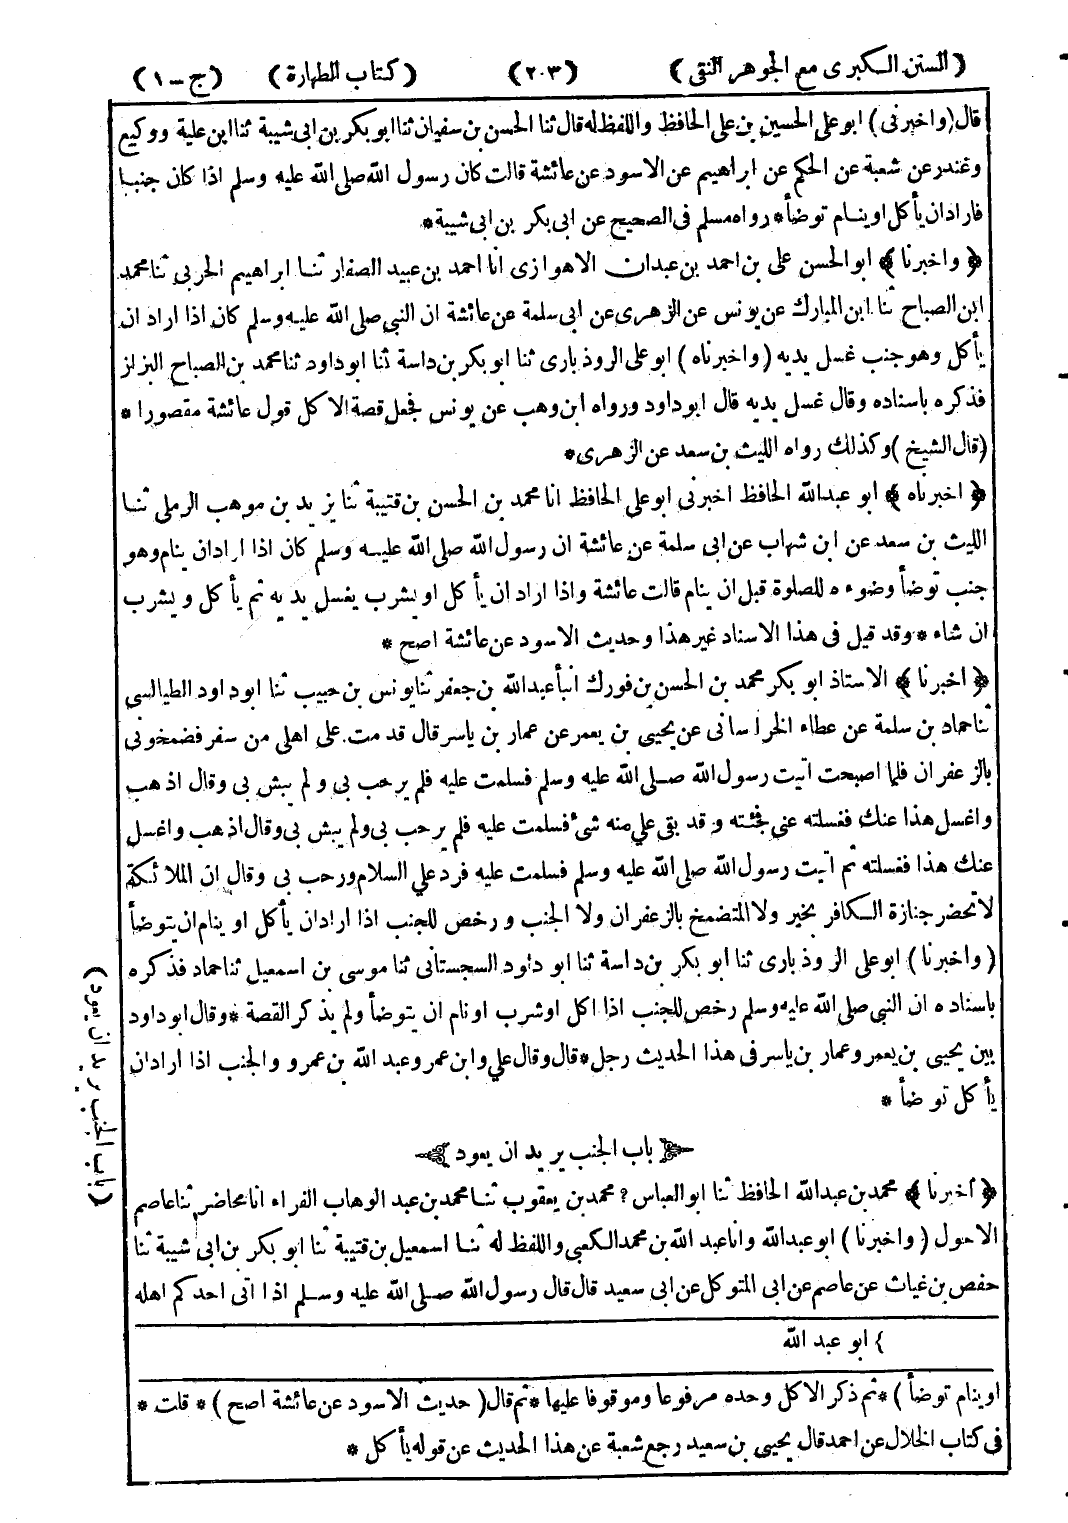 (السنن الكبرى مع الجوهر النقى) (٢٠٣) (كتاب الطهارة) (ج-١)
قال (واخبرنى) ابو على الحسين بن على الحافظ واللفظ له قال ثنا الحسن بن سفيان ثنا ابو بكر بن ابى شيبة ثنا ابن علية ووكيع
وغندر عن شعبة عن الحكم عن ابراهيم عن الاسود عن عائشة قالت كان رسول الله صلى الله عليه وسلم اذا كان جنبا
فاراد ان يأكل او ينام توضأ* رواه مسلم فى الصحيح عن ابى بكر بن ابى شيبة*
﴿واخبرنا﴾ ابو الحسن على بن احمد بن عبدان الاهوازى انا احمد بن عبيد الصفار ثنا ابراهيم الحربى ثنا محمد
ابن الصباح ثنا ابن المبارك عن يونس عن الزهرى عن ابى سلمة عن عائشة ان النبى صلى الله عليه وسلم كان اذا اراد ان
يأكل وهو جنب غسل يديه (واخبرناه) ابو على الروذبارى ثنا ابو بكر بن داسة ثنا ابو داود ثنا محمد بن الصباح البزاز
فذكره باسناده وقال غسل يديه قال ابو داود ورواه ابن وهب عن يونس فجعل قصة الاكل قول عائشة مقصورا *
(قال الشيخ) وكذلك رواه الليث بن سعد عن الزهرى*
﴿اخبرناه﴾ ابو عبد الله الحافظ اخبرنى ابو على الحافظ انا محمد بن الحسن بن قتيبة ثنا يزيد بن موهب الرملى ثنا
الليث بن سعد عن ابن شهاب عن ابى سلمة عن عائشة ان رسول الله صلى الله عليه وسلم كان اذا اراد ان ينام وهو
جنب توضأ وضوءه للصلوة قبل ان ينام قالت عائشة واذا اراد ان يأكل او يشرب يغسل يديه ثم يأكل ويشرب
ان شاء * وقد قيل فى هذا الاسناد غير هذا وحديث الاسود عن عائشة اصح *
﴿اخبرنا﴾ الاستاذ ابو بكر محمد بن الحسن بن فورك انبأ عبد الله بن جعفر ثنا يونس بن حبيب ثنا ابو داود الطيالسى
ثنا حماد بن سلمة عن عطاء الخراسانى عن يحيى بن يعمر عن عمار بن ياسر قال قدمت على اهلى من سفر فضمخونى
بالزعفران فلما اصبحت اتيت رسول الله صلى الله عليه وسلم فسلمت عليه فلم يرحب بى ولم يبش بى وقال اذهب
واغسل هذا عنك فغسلته عنى فجئته وقد بقى على منه شئ فسلمت عليه فلم يرحب بى ولم يبش بى وقال اذهب واغسل
عنك هذا فغسلته ثم اتيت رسول الله صلى الله عليه وسلم فسلمت عليه فرد على السلام ورحب بى وقال ان الملائكة
لا تحضر جنازة الكافر بخير ولا المتضمخ بالزعفران ولا الجنب ورخص للجنب اذا اراد ان يأكل او ينام ان يتوضأ
(واخبرنا) ابو على الروذبارى ثنا ابو بكر بن داسة ثنا ابو داود السجستانى ثنا موسى بن اسمعيل ثنا حماد فذكره
باسناده ان النبى صلى الله عليه وسلم رخص للجنب اذا اكل او شرب او نام ان يتوضأ ولم يذكر القصة * وقال ابو داود
بين يحيى بن يعمر وعمار بن ياسر فى هذا الحديث رجل* قال وقال على وابن عمر وعبد الله بن عمرو والجنب اذا اراد ان
يأكل توضأ *
باب الجنب يريد ان يعود
﴿اخبرنا﴾ محمد بن عبد الله الحافظ ثنا ابو العباس ? محمد بن يعقوب ثنا محمد بن عبد الوهاب الفراء انا محاضر ثنا عاصم
الاحول (واخبرنا) ابو عبد الله وانا عبد الله بن محمد الكعبى واللفظ له ثنا اسمعيل بن قتيبة ثنا ابو بكر بن ابى شيبة ثنا
حفص بن غياث عن عاصم عن ابى المتوكل عن ابى سعيد قال قال رسول الله صلى الله عليه وسلم اذا اتى احدكم اهله
} ابو عبد الله
او ينام توضأ)* ثم ذكر الاكل وحده مرفوعا وموقوفا عليها * ثم قال (حديث الاسود عن عائشة اصح)* قلت *
فى كتاب الخلال عن احمد قال يحيى بن سعيد رجع شعبة عن هذا الحديث عن قوله يأكل *
(باب الجنب يريد ان يعود)